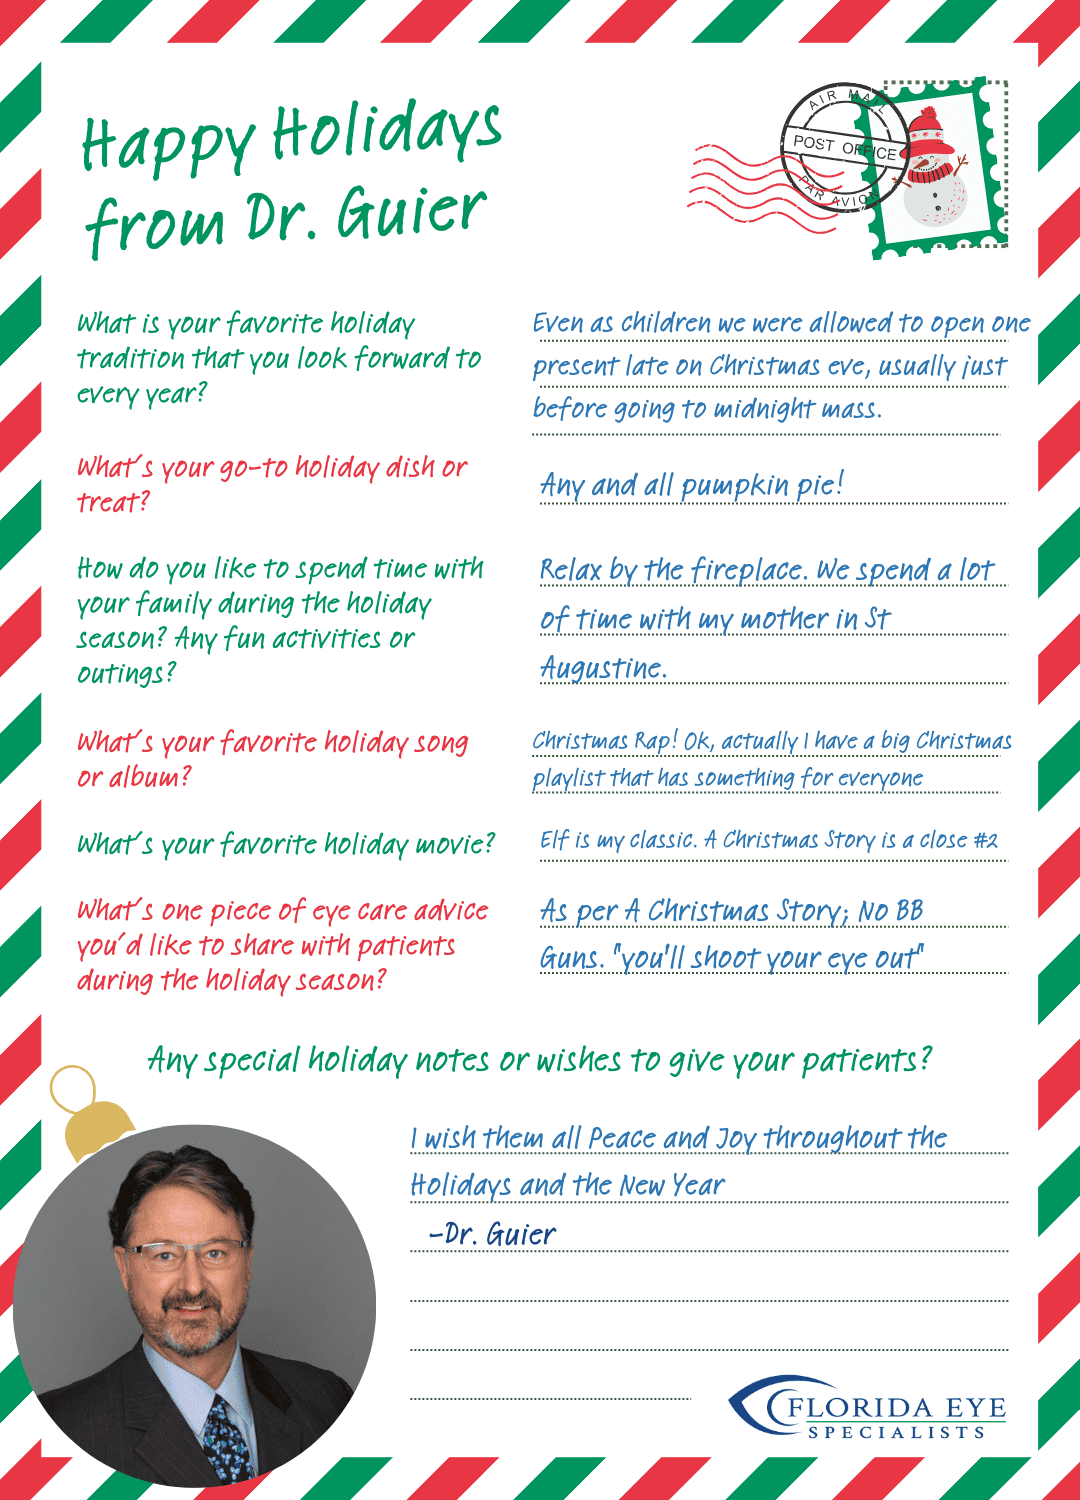 Happy Holidays
from Dr. Guier
AIR MAIL
POST OFFICE
PAR AVION
What is your favorite holiday
tradition that you look forward to
every year?
Even as children we were allowed to open one
present late on Christmas eve, usually just
before going to midnight mass.
What's your go-to holiday dish or
treat?
Any and all pumpkin pie!
How do you like to spend time with
your family during the holiday
season? Any fun activities or
outings?
Relax by the fireplace. We spend a lot
of time with my mother in St
Augustine.
What's your favorite holiday song
or album?
Christmas Rap! Ok, actually I have a big Christmas
playlist that has something for everyone
What's your favorite holiday movie?
Elf is my classic. A Christmas Story is a close #2
What's one piece of eye care advice
you'd like to share with patients
during the holiday season?
As per A Christmas Story; No BB
Guns. "you'll shoot your eye out"
Any special holiday notes or wishes to give your patients?
I wish them all Peace and Joy throughout the
Holidays and the New Year
-Dr. Guier
FLORIDA EYE
SPECIALISTS